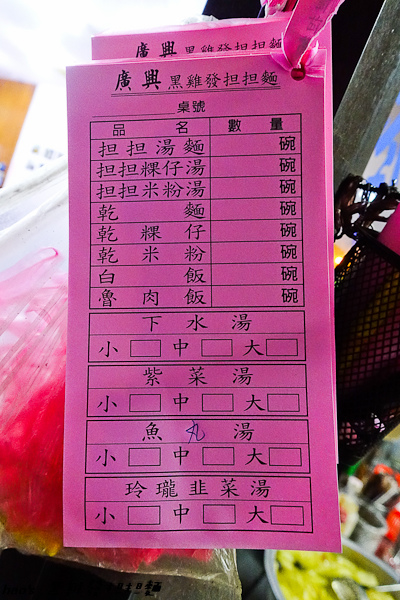 廣興黑雞發担担麵
廣興黑雞發担担麵
桌號
品名 數量
担担湯麵 碗
担担粿仔湯 碗
担担米粉湯 碗
乾麵 碗
乾粿仔 碗
乾米粉 碗
白飯 碗
魯肉飯 碗
下水湯
小 中 大
紫菜湯
小 中 大
魚丸湯
小 中 大
玲瓏韭菜湯
小 中 大